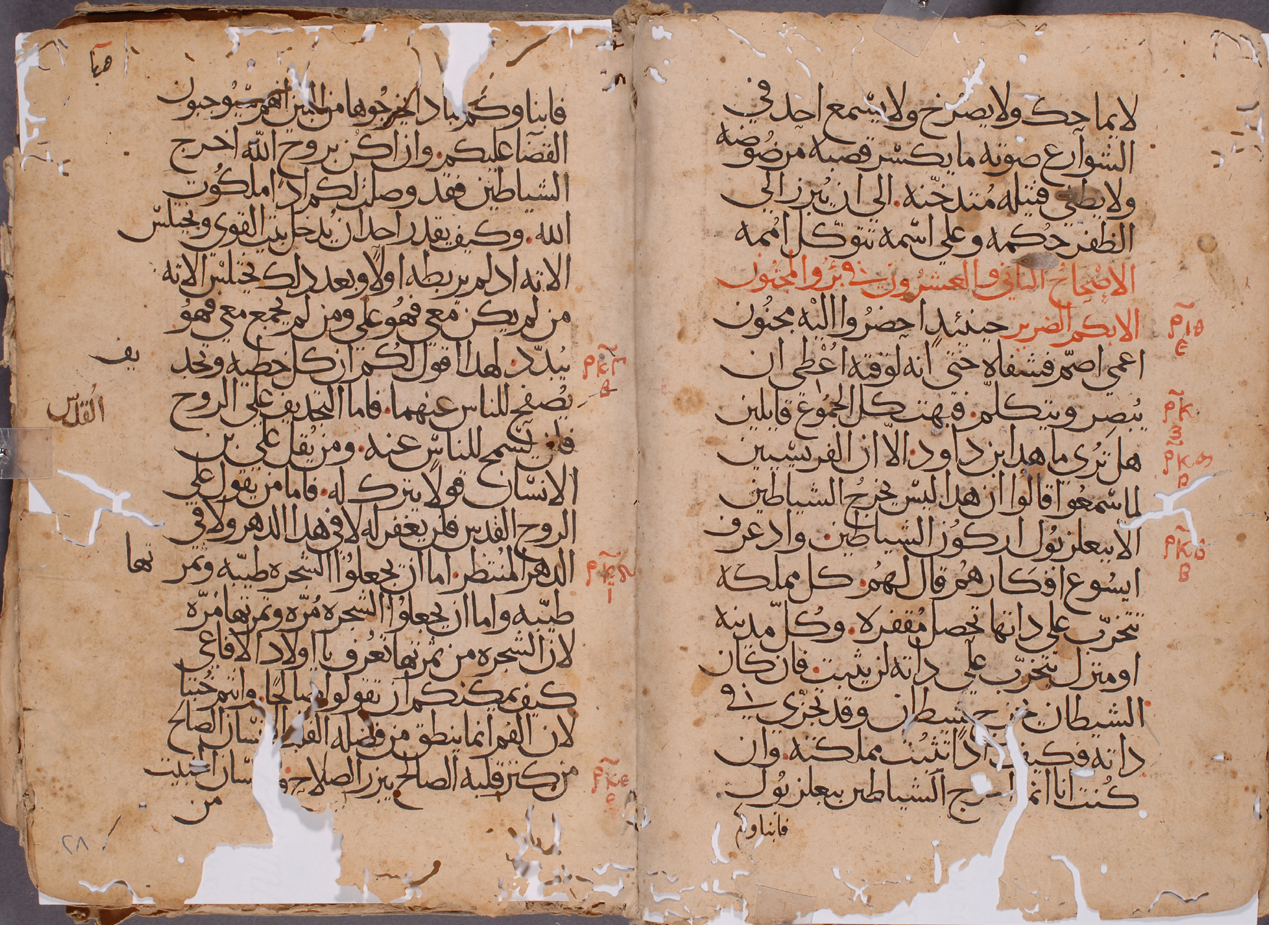 لا يماحك ولا يصرخ ولا يسمع احد في
الشوارع صوته ما يكسر قصبه مرضوضه
ولا يطفي فتيله مُتدخّنه. الي ان يُبرز الي
الظفر حكمه وعلي اسمه تتوكل اممه
الاصحاح الثاني والعشرون في برو المجنون
الابكم الضرير حينئيدٍ احضرُوا اليْه مجنُون
اعمي اصمّ فشفاه حتي انه لوقته اعُطي ان
يُبصر ويتكلم. فبهت كل الجموع قايلين
هل تري ما هدا ابن داود. الا ان الفريسيين
لما سمعوا قالوا ان هدا ليس يخرج الشياطين
الا ببعلزبُول اركون الشياطين. واد عرف
ايسُوع افكارهُم قال لهُم. كل مملكه
تتخرّب علي داتها تحصل مُقفره. وكُل مدينه
او منزل يتخرّب علي داته لن يثبت. فان كان
الشيطان يخرج شيطان وقد تجزي في
داته فكيف ادا تثبُت مملكته. وان
كُنت انا انما اخرج الشياطين ببعلزبُول
فابناوكم
ρ̅ι̅θ
ε
ρ̅κ̅
ρ̅κ̅
ρ̅κ̅
β
فابناوكم بماد ا يخرجُوها من اجل هم يستوجبون
القضا عليكم. وان اكن بروح الله اخرج
الشياطين فقد وصلت لكم ادا ملكُوت
الله. وكيف يقدر احد ان يُدخل بيت القوي ويختلس
الاته اد لم يربطه اولًا وبعد دلك يختلس الاته
من لم يكن معي فهُو علي ومن لم يجمع معي فهُو
يُبدّد. لهدا اقول لكم ان كل خطيه وتجد
يف
يُصفح للناس عنهما. فاما التجديف علي الروح
القُدس
فلن يسمح للناس عنه. ومن يقل علي بن
الانسان قولا يترك له. فاما من يقول علي
الروح القدس فلن يغفر له لا في هدا الدهر ولا في
الدهر المُنتظر. اما ان تجعلوا الشجره طيبه وثمر
تها
طيّبه واما ان تجعلوا الشجره مُرّه وثمرتها مُرّه
لان الشجره من ثمرتها تعُرف يا اولاد الافاعي
كيف يمكنكم ان تقولوا صالحًا. وانتم خُبثا
لان الفم انما ينطق من فضله القلب الانسان الصالح
من كنز قلبه الصالح يبرز الصلاح. والانسان الخبيت
من
ρ̅κ̅ε
ε
٢٨